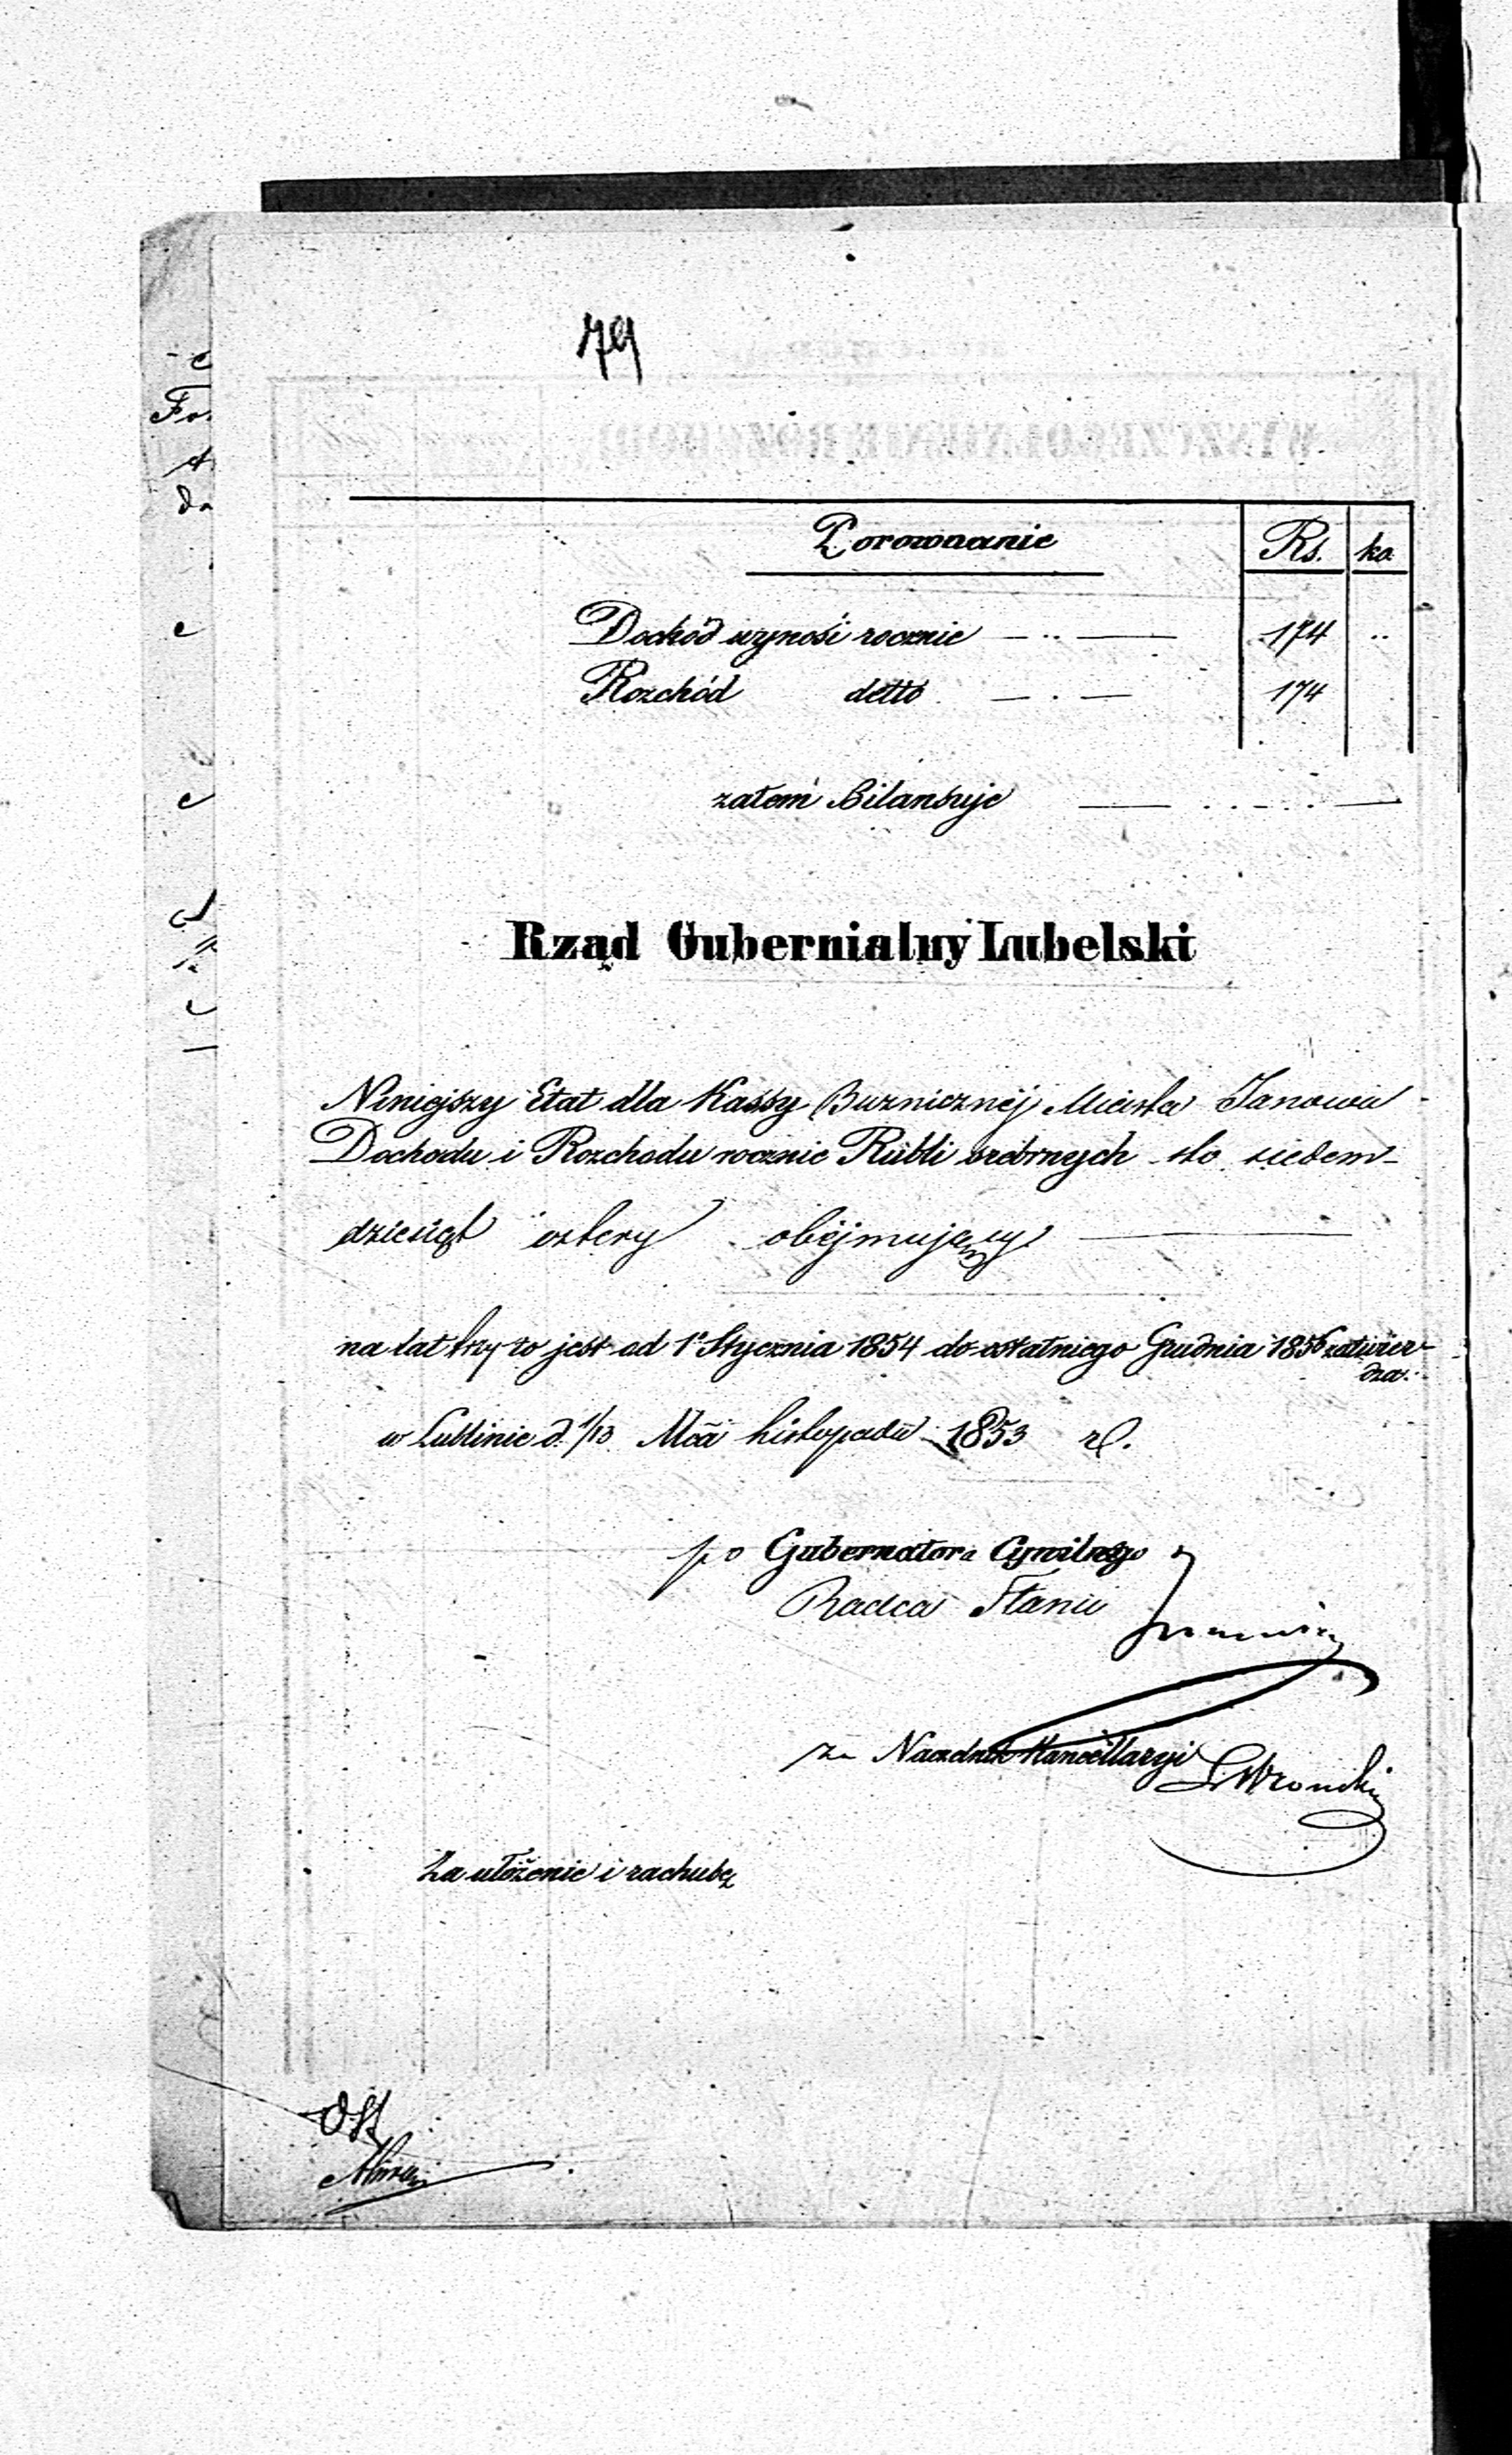 79
Porownanie Rs. ko.
Dochód wynośi rocznie 174 ..
Rozchód detto 174
zatem Bilansuje
Rząd Gubernialny Lubelski
Niniejszy Etat dla Kassy Buzniczněj Miasta Janowa
Dochodu i Rozchodu rocznie Rubli srebrnych sto siedem-
dziesiąt cztery obejmujący
na lat trzy to jest od 1º Stycznia 1854 do ostatniego Grudnia 1856 zatwier-
dza.
w Lublinie d. 1/13 Mca Listopada 1853 r.
po Gubernatora Cywilnego
Radca Stanu
za Naczelnik Kancellaryi
Wronski
Za ułożenie i rachubę